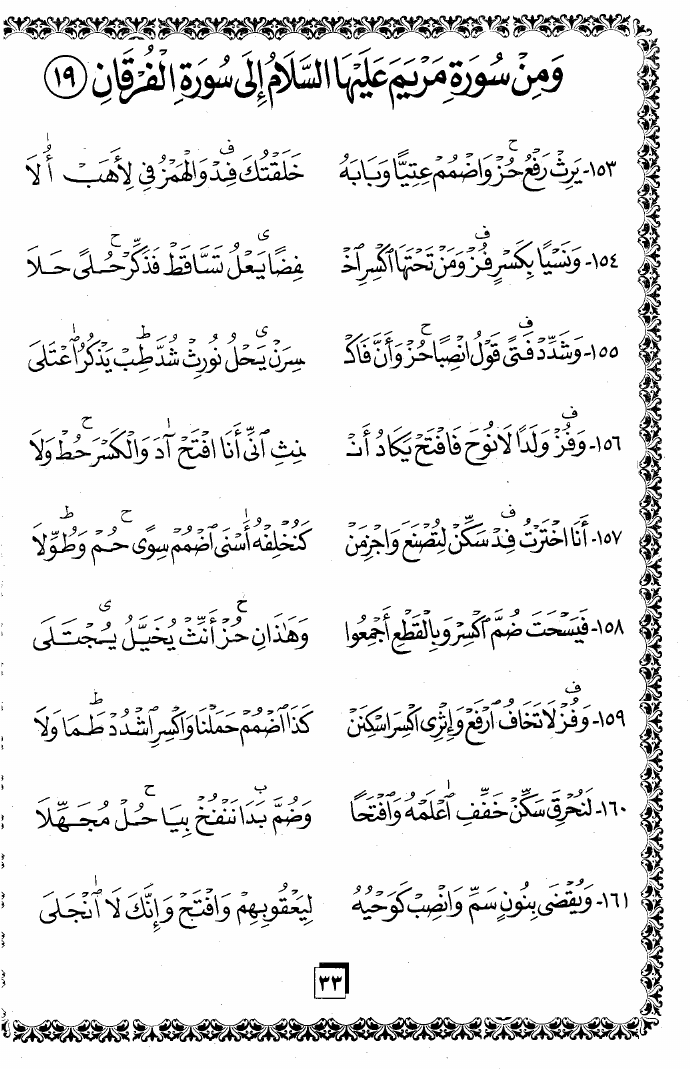 وَمِنْ سُورَةِ مَرْيَمَ عَلَيْهَا السَّلَامُ إِلَى سُورَةِ الْفُرْقَانِ (١٩)
١٥٣- يَرِثْ رَفْعُ حُزْ وَاضْمُمْ عِتِيًّا وَبَابَهُ خَلَقْتُكَ فِدْ وَالْهَمْزُ فِي لِأَهَبْ أَلَا
١٥٤- وَنَسْيًا بِكَسْرٍ فُزْ وَمَنْ تَحْتَهَا اكْسِرِ اخْـ ـفِضًا يَعْلُ تَسَّاقَطْ فَذَكِّرْ حُلًى حَلَا
١٥٥- وَشَدِّدْ فَتًى قَوْلُ انْصِبًا حُزْ وَأَنَّ فَاكْـ ـسِرَنْ يَحْلُ نُورِثْ شُدَّ طِبْ يَذْكُرُ اعْتَلَى
١٥٦- وَفُزْ وَلَدًا لَا نُوحَ فَافْتَحْ يَكَادُ أَنْـ ـنِثِ انِّي أَنَا افْتَحْ آدَ وَالْكَسْرَ حُطْ وَلَا
١٥٧- أَنَا اخْتَرْتُ فِدْ سَكِّنْ لِتُصْنَعَ وَاجْزِمَنْ كَنُخْلِفْهُ أَسْنَى اضْمُمْ سِوًى حُمْ وَطُوِّلَا
١٥٨- فَيَسْحَتَ ضُمَّ اكْسِرْ وَبِالْقَطْعِ أَجْمِعُوا وَهَٰذَانِ حُزْ أَنِّثْ يُخَيَّلُ يُجْتَلَى
١٥٩- وَفُزْ لَا تَخَافُ ارْفَعْ وَإِثْرِي اكْسِرَ اسْكِنَنْ كَذَا اضْمُمْ حَمَلْنَا وَاكْسِرِ اشْدُدْ طَمَا وَلَا
١٦٠- لَنَحْرُقَ سَكِّنْ خَفِّفِ اعْلَمْهُ وَافْتَحًا وَضُمَّ بَدَا نَنْفُخْ بِيَا حُلْ مُجَهِّلَا
١٦١- وَيُقْضَى بِنُونٍ سَمِّ وَانْصِبْ كَوَحْيُهُ لِيَعْقُوبِهِمْ وَافْتَحْ وَإِنَّكَ لَا انْجَلَى
٣٣